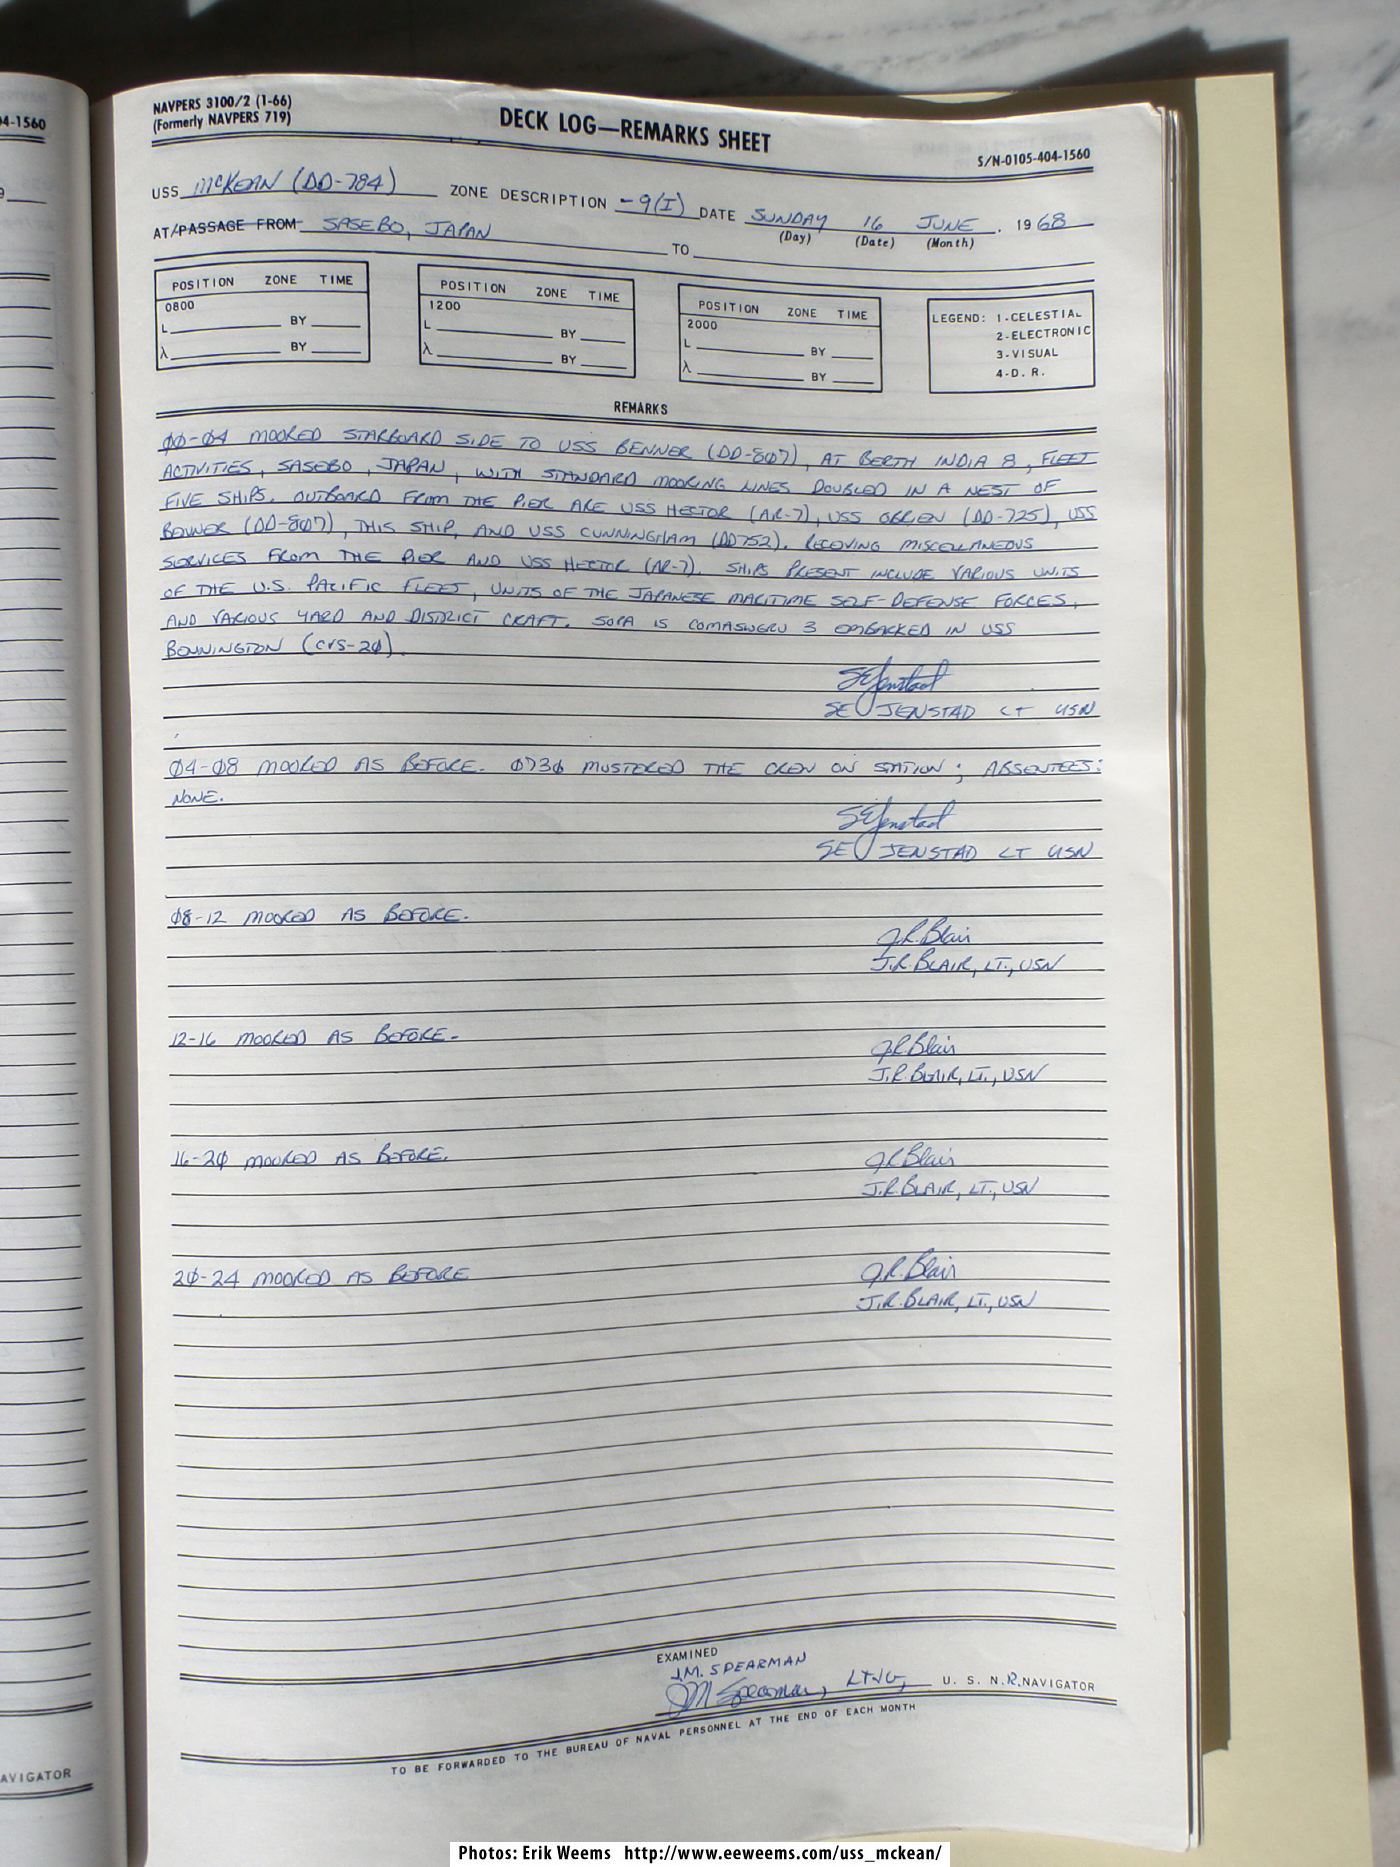 04-1560
NAVPERS 3100/2 (1-66)
(Formerly NAVPERS 719)
DECK LOG—REMARKS SHEET
S/N-0105-404-1560
USS McKEAN (DD-784) ZONE DESCRIPTION -9(I) DATE SUNDAY 16 JUNE . 1968
(Day) (Date) (Month)
AT/PASSAGE FROM SASEBO, JAPAN TO
POSITION ZONE TIME
0800
L BY
λ BY
POSITION ZONE TIME
1200
L BY
λ BY
POSITION ZONE TIME
2000
L BY
λ BY
LEGEND: 1-CELESTIAL
2-ELECTRONIC
3-VISUAL
4-D. R.
REMARKS
00-04 MOORED STARBOARD SIDE TO USS BENNER (DD-807), AT BERTH INDIA 8, FLEET
ACTIVITIES, SASEBO, JAPAN, WITH STANDARD MOORING LINES DOUBLED IN A NEST OF
FIVE SHIPS. OUTBOARD FROM THE PIER ARE USS HECTOR (AR-7), USS OBRIEN (DD-725), USS
BENNER (DD-807), THIS SHIP, AND USS CUNNINGHAM (DD752). RECEVING MISCELLANEOUS
SERVICES FROM THE PIER AND USS HECTOR (AR-7). SHIPS PRESENT INCLUDE VARIOUS UNITS
OF THE U.S. PACIFIC FLEET, UNITS OF THE JAPANESE MARITIME SELF-DEFENSE FORCES,
AND VARIOUS YARD AND DISTRICT CRAFT. SOPA IS COMASWGRU 3 EMBARKED IN USS
BENNINGTON (CVS-20).
SEJenstad
SE JENSTAD LT USN
04-08 MOORED AS BEFORE. 0730 MUSTERED THE CREW ON STATION; ABSENTEES:
NONE.
SEJenstad
SE JENSTAD LT USN
08-12 MOORED AS BEFORE.
J.R.Blair
J.R.BLAIR, LT., USN
12-16 MOORED AS BEFORE.
J.R.Blair
J.R.BLAIR, LT., USN
16-20 MOORED AS BEFORE.
J.R.Blair
J.R.BLAIR, LT., USN
20-24 MOORED AS BEFORE
J.R.Blair
J.R.BLAIR, LT., USN
EXAMINED
J.M. SPEARMAN
JM Spearman, LTJG, U. S. N.R. NAVIGATOR
TO BE FORWARDED TO THE BUREAU OF NAVAL PERSONNEL AT THE END OF EACH MONTH
AVIGATOR
Photos: Erik Weems http://www.eeweems.com/uss_mckean/